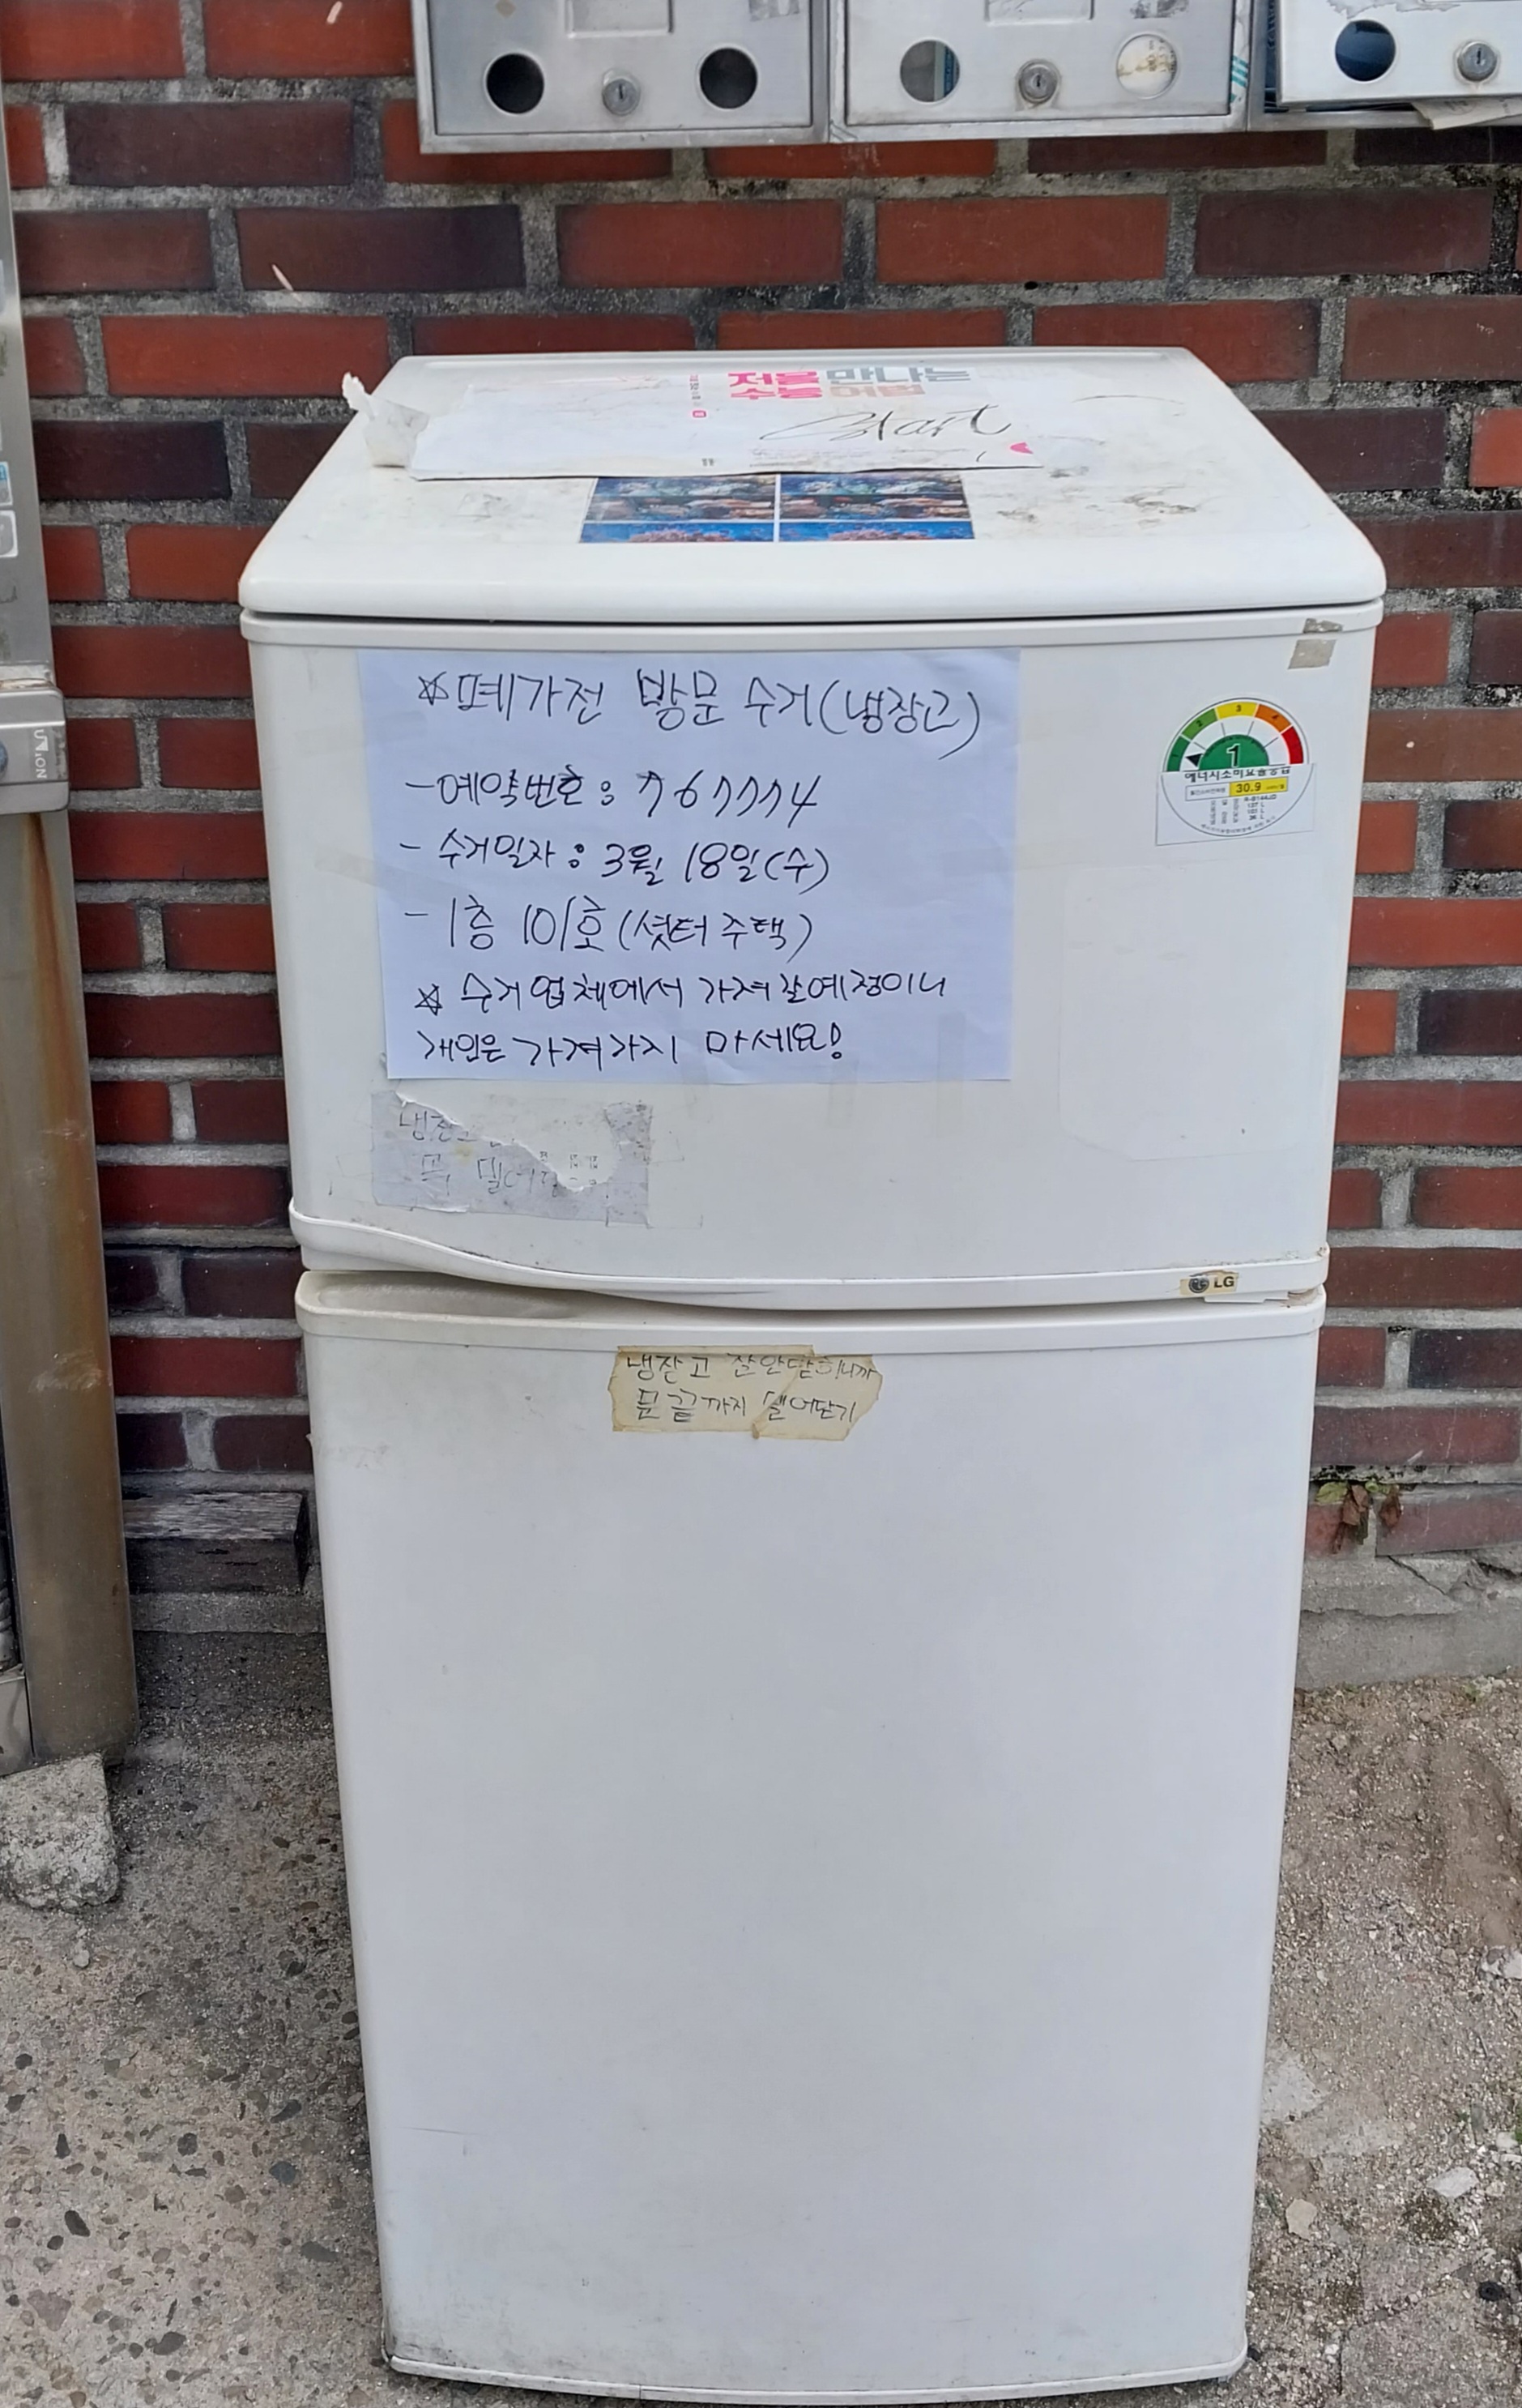 저을 만나는
수능 어법
Start
☆폐가전 방문 수거(냉장고)
-예약번호: 767774
- 수거일자: 3월 18일(수)
- 1층 101호(셧터 주택)
☆ 수거 업체에서 가져 갈예정이니
개인은 가져가지 마세요!
1
2
3
4
에너지소비효율등급
30.9
R-B144JD
냉장고
밀어
LG
냉장고 잘안닫히니까
문끝까지 밀어닫기